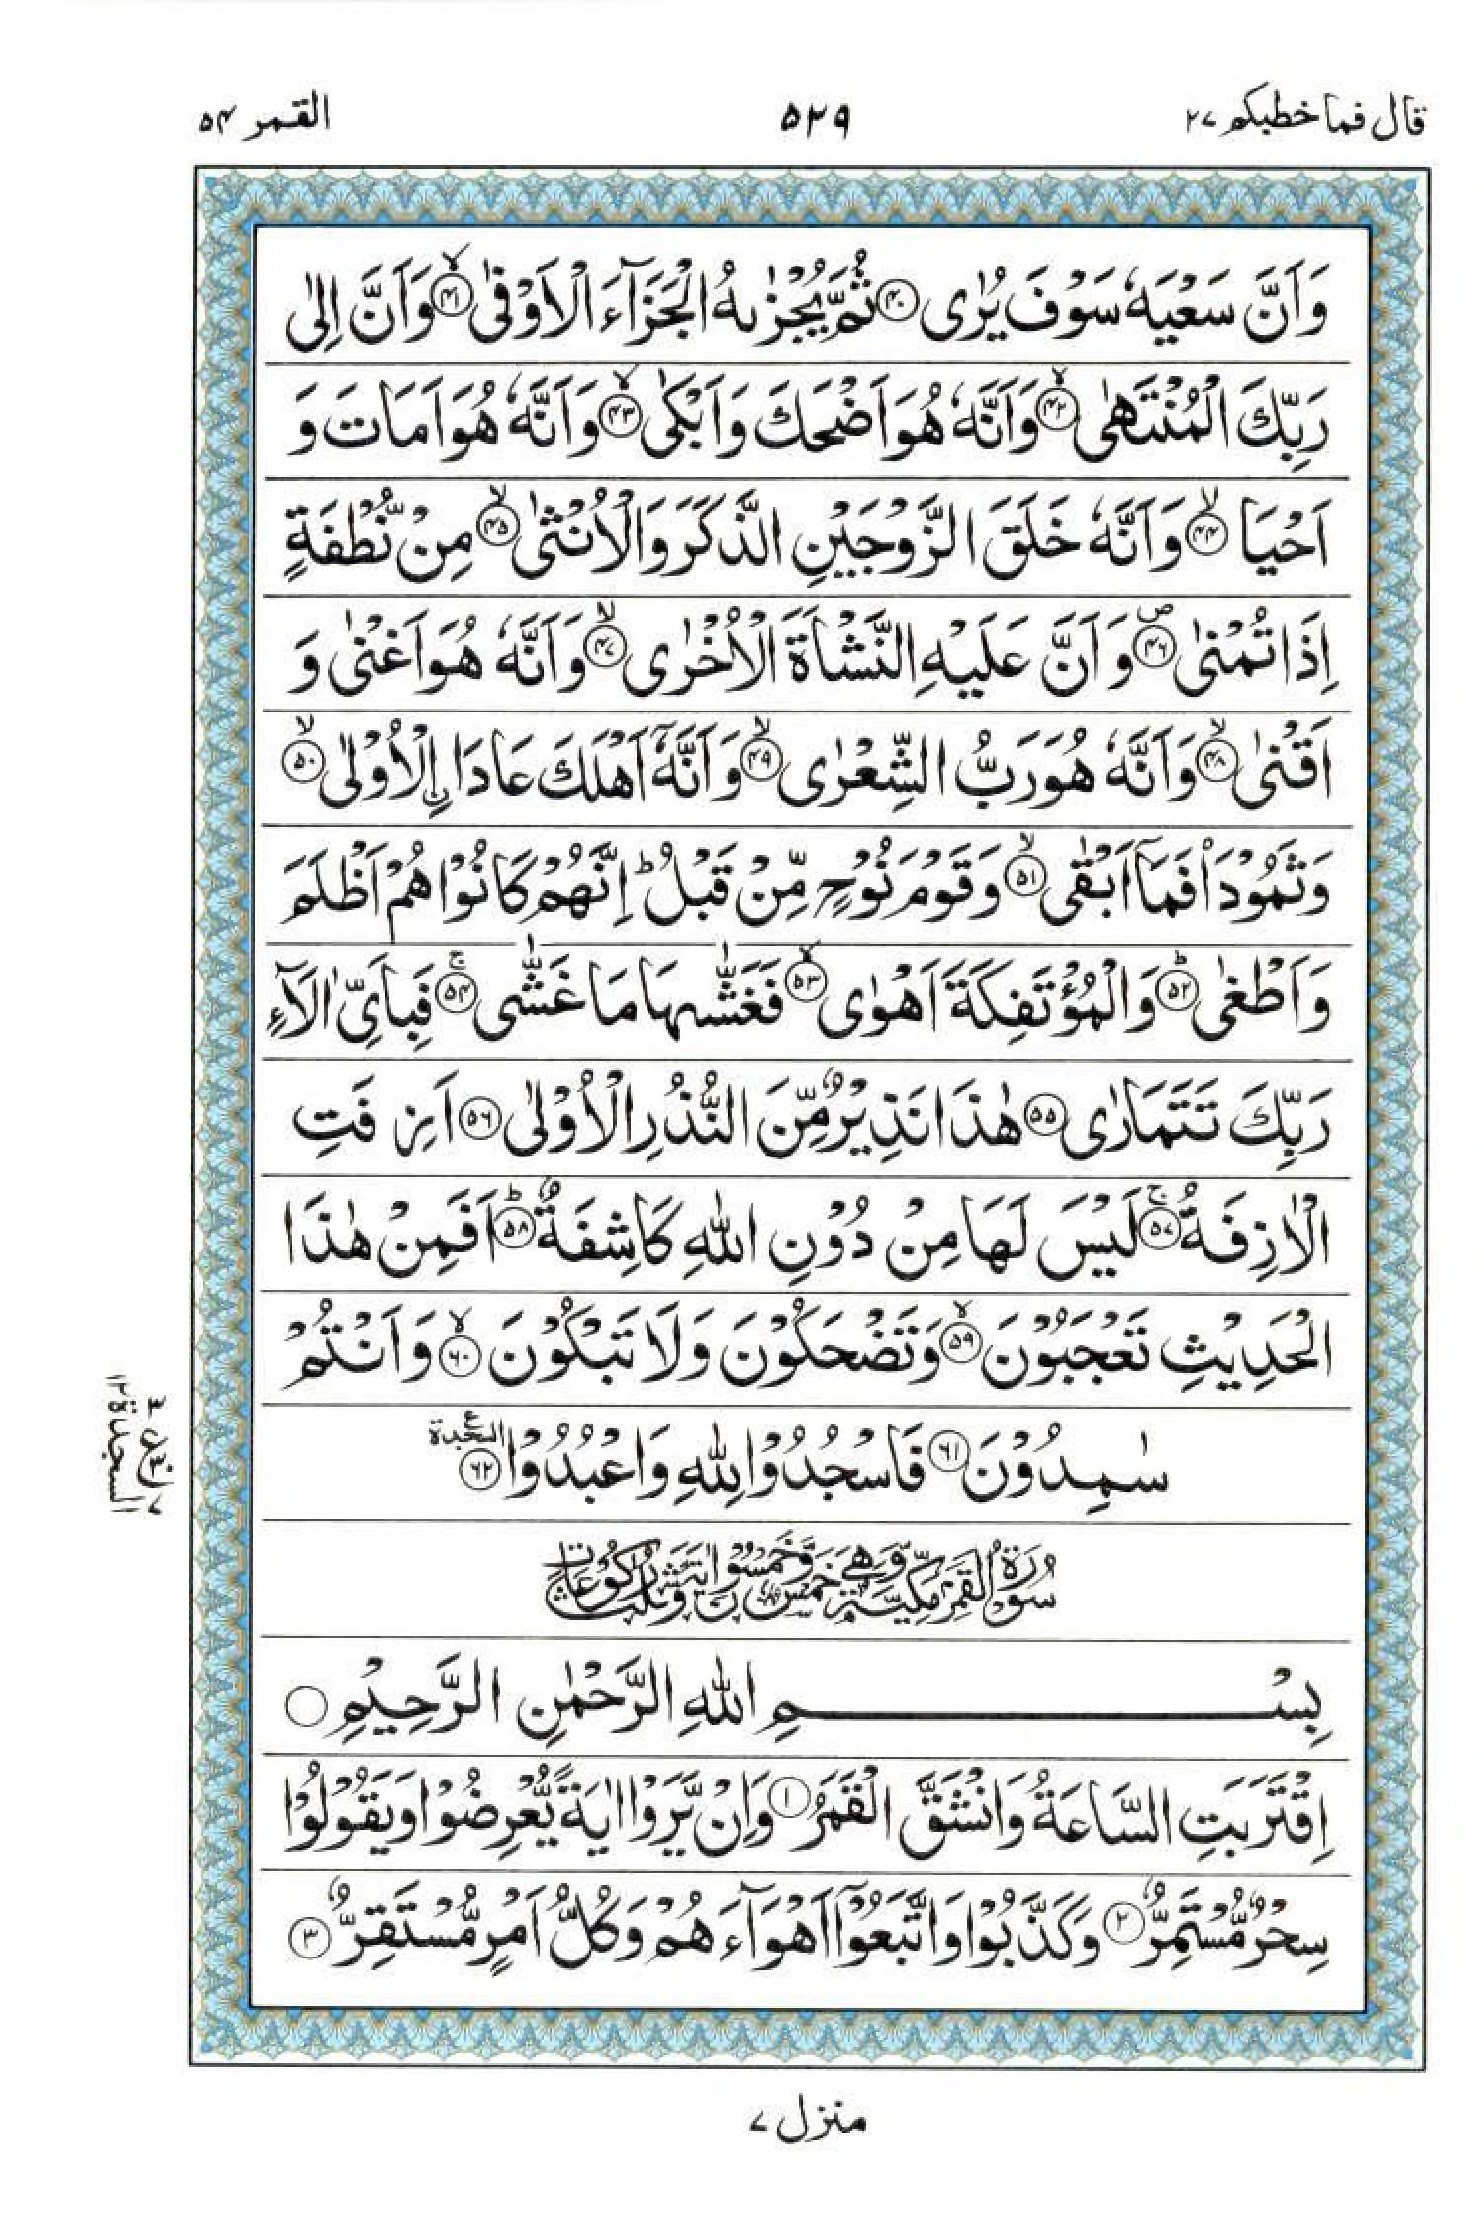 قال فما خطبكم ٢٧
٥٢٩
القمر ٥٤
وَاَنَّ سَعْيَهٗ سَوْفَ يُرٰى ۪﴿٤٠﴾ ثُمَّ يُجْزٰىهُ الْجَزَآءَ الْاَوْفٰى ۙ﴿٤١﴾ وَاَنَّ اِلٰى
رَبِّكَ الْمُنْتَهٰى ۙ﴿٤٢﴾ وَاَنَّهٗ هُوَ اَضْحَكَ وَاَبْكٰى ۙ﴿٤٣﴾ وَاَنَّهٗ هُوَ اَمَاتَ وَ
اَحْيَا ۙ﴿٤٤﴾ وَاَنَّهٗ خَلَقَ الزَّوْجَيْنِ الذَّكَرَ وَالْاُنْثٰى ۙ﴿٤٥﴾ مِنْ نُّطْفَةٍ
اِذَا تُمْنٰى ۪﴿٤٦﴾ وَاَنَّ عَلَيْهِ النَّشْاَةَ الْاُخْرٰى ۙ﴿٤٧﴾ وَاَنَّهٗ هُوَ اَغْنٰى وَ
اَقْنٰى ۙ﴿٤٨﴾ وَاَنَّهٗ هُوَ رَبُّ الشِّعْرٰى ۙ﴿٤٩﴾ وَاَنَّهٗۤ اَهْلَكَ عَادَا ۨالْاُوْلٰى ۙ﴿٥٠﴾
وَثَمُوْدَا۟ فَمَاۤ اَبْقٰى ۙ﴿٥١﴾ وَقَوْمَ نُوْحٍ مِّنْ قَبْلُ ؕ اِنَّهُمْ كَانُوْا هُمْ اَظْلَمَ
وَاَطْغٰى ؕ﴿٥٢﴾ وَالْمُؤْتَفِكَةَ اَهْوٰى ۙ﴿٥٣﴾ فَغَشّٰىهَا مَا غَشّٰى ۚ﴿٥٤﴾ فَبِاَىِّ اٰلَآءِ
رَبِّكَ تَتَمَارٰى ﴿٥٥﴾ هٰذَا نَذِيْرٌ مِّنَ النُّذُرِ الْاُوْلٰى ﴿٥٦﴾ اَزِفَتِ
الْاٰزِفَةُ ۚ﴿٥٧﴾ لَيْسَ لَهَا مِنْ دُوْنِ اللّٰهِ كَاشِفَةٌ ؕ﴿٥٨﴾ اَفَمِنْ هٰذَا
الْحَدِيْثِ تَعْجَبُوْنَ ۙ﴿٥٩﴾ وَتَضْحَكُوْنَ وَلَا تَبْكُوْنَ ۙ﴿٦٠﴾ وَاَنْتُمْ
سٰمِدُوْنَ ﴿٦١﴾ فَاسْجُدُوْا لِلّٰهِ وَاعْبُدُوْا ﴿٦٢﴾ السجدة ع
السجدة ١٢
سُوْرَةُ الْقَمَرِ مَكِّيَّةٌ وَّهِىَ خَمْسٌ وَّخَمْسُوْنَ اٰيَةً وَّثَلٰثُ رُكُوْعَاتٍ
بِسْمِ اللّٰهِ الرَّحْمٰنِ الرَّحِيْمِ
اِقْتَرَبَتِ السَّاعَةُ وَانْشَقَّ الْقَمَرُ ﴿١﴾ وَاِنْ يَّرَوْا اٰيَةً يُّعْرِضُوْا وَيَقُوْلُوْا
سِحْرٌ مُّسْتَمِرٌّ ﴿٢﴾ وَكَذَّبُوْا وَاتَّبَعُوْۤا اَهْوَآءَهُمْ وَكُلُّ اَمْرٍ مُّسْتَقِرٌّ ﴿٣﴾
منزل ٧